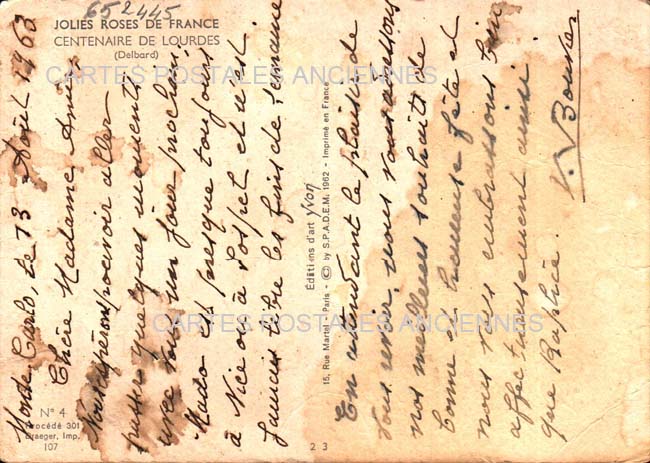 652445
JOLIES ROSES DE FRANCE
CENTENAIRE DE LOURDES
(Delbard)
CARTES POSTALES ANCIENNES
CARTES POSTALES ANCIENNES
Monte Carlo, le 13 Août 1963
Chère Madame Anie
Nous espérons pouvoir aller
passer quelques moments
avec vous un jour prochain
Mado est presque toujours
à Nice ou à Sospel et n'est
jamais libre les fins de semaine
En attendant le plaisir de
vous revoir, nous vous adressons
nos meilleurs souhaits de
bonne et heureuse fête et
nous vous embrassons bien
affectueusement ainsi
que Raphie.
V. Bouvier
Editions d'art yvon
15, Rue Martel - Paris - © by S.P.A.D.E.M. 1962 - Imprimé en France
N° 4
Procédé 301
Draeger, Imp.
107
2 3